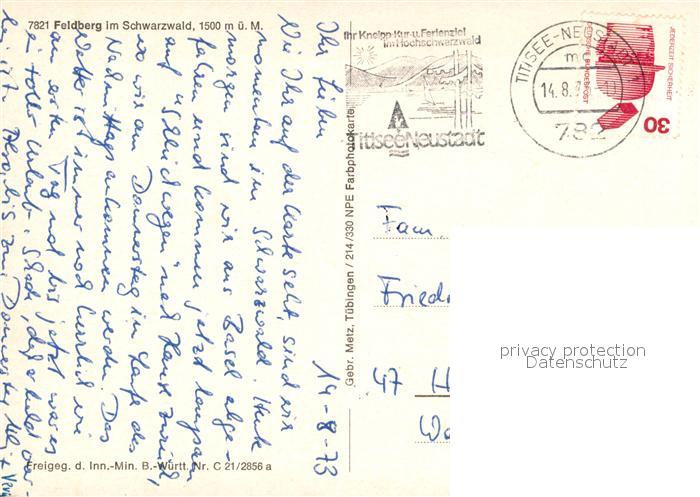 7821 Feldberg im Schwarzwald, 1500 m ü. M.
14-8-73
Ihr Lieben
Wie Ihr auf der Karte seht, sind wir
momentan im Schwarzwald. Heute
morgen sind wir aus Basel abge-
fahren und kommen jetzt langsam
auf "Schleichwegen" nach Hause zurück,
wo wir am Donnerstag im Laufe des
Nachmittags ankommen werden. Das
Wetter ist immer noch herrlich wie
am ersten Tag und bis jetzt war es
ein toller Urlaub. Schade, daß er bald vor-
bei ist. Herzlichst bis zum Donnerstag
Freigeg. d. Inn.-Min. B.-Württ. Nr. C 21/2856 a
Gebr. Metz, Tübingen / 214/330 NPE Farbphotokarte
Ihr Kneipp-Kur-u. Ferienziel
im Hochschwarzwald
TitiseeNeustadt
TITISEE-NEUSTADT
m
14.8.
782
JEDERZEIT SICHERHEIT
DEUTSCHE BUNDESPOST
30
Fam
Friedr
47 H
privacy protection
Datenschutz